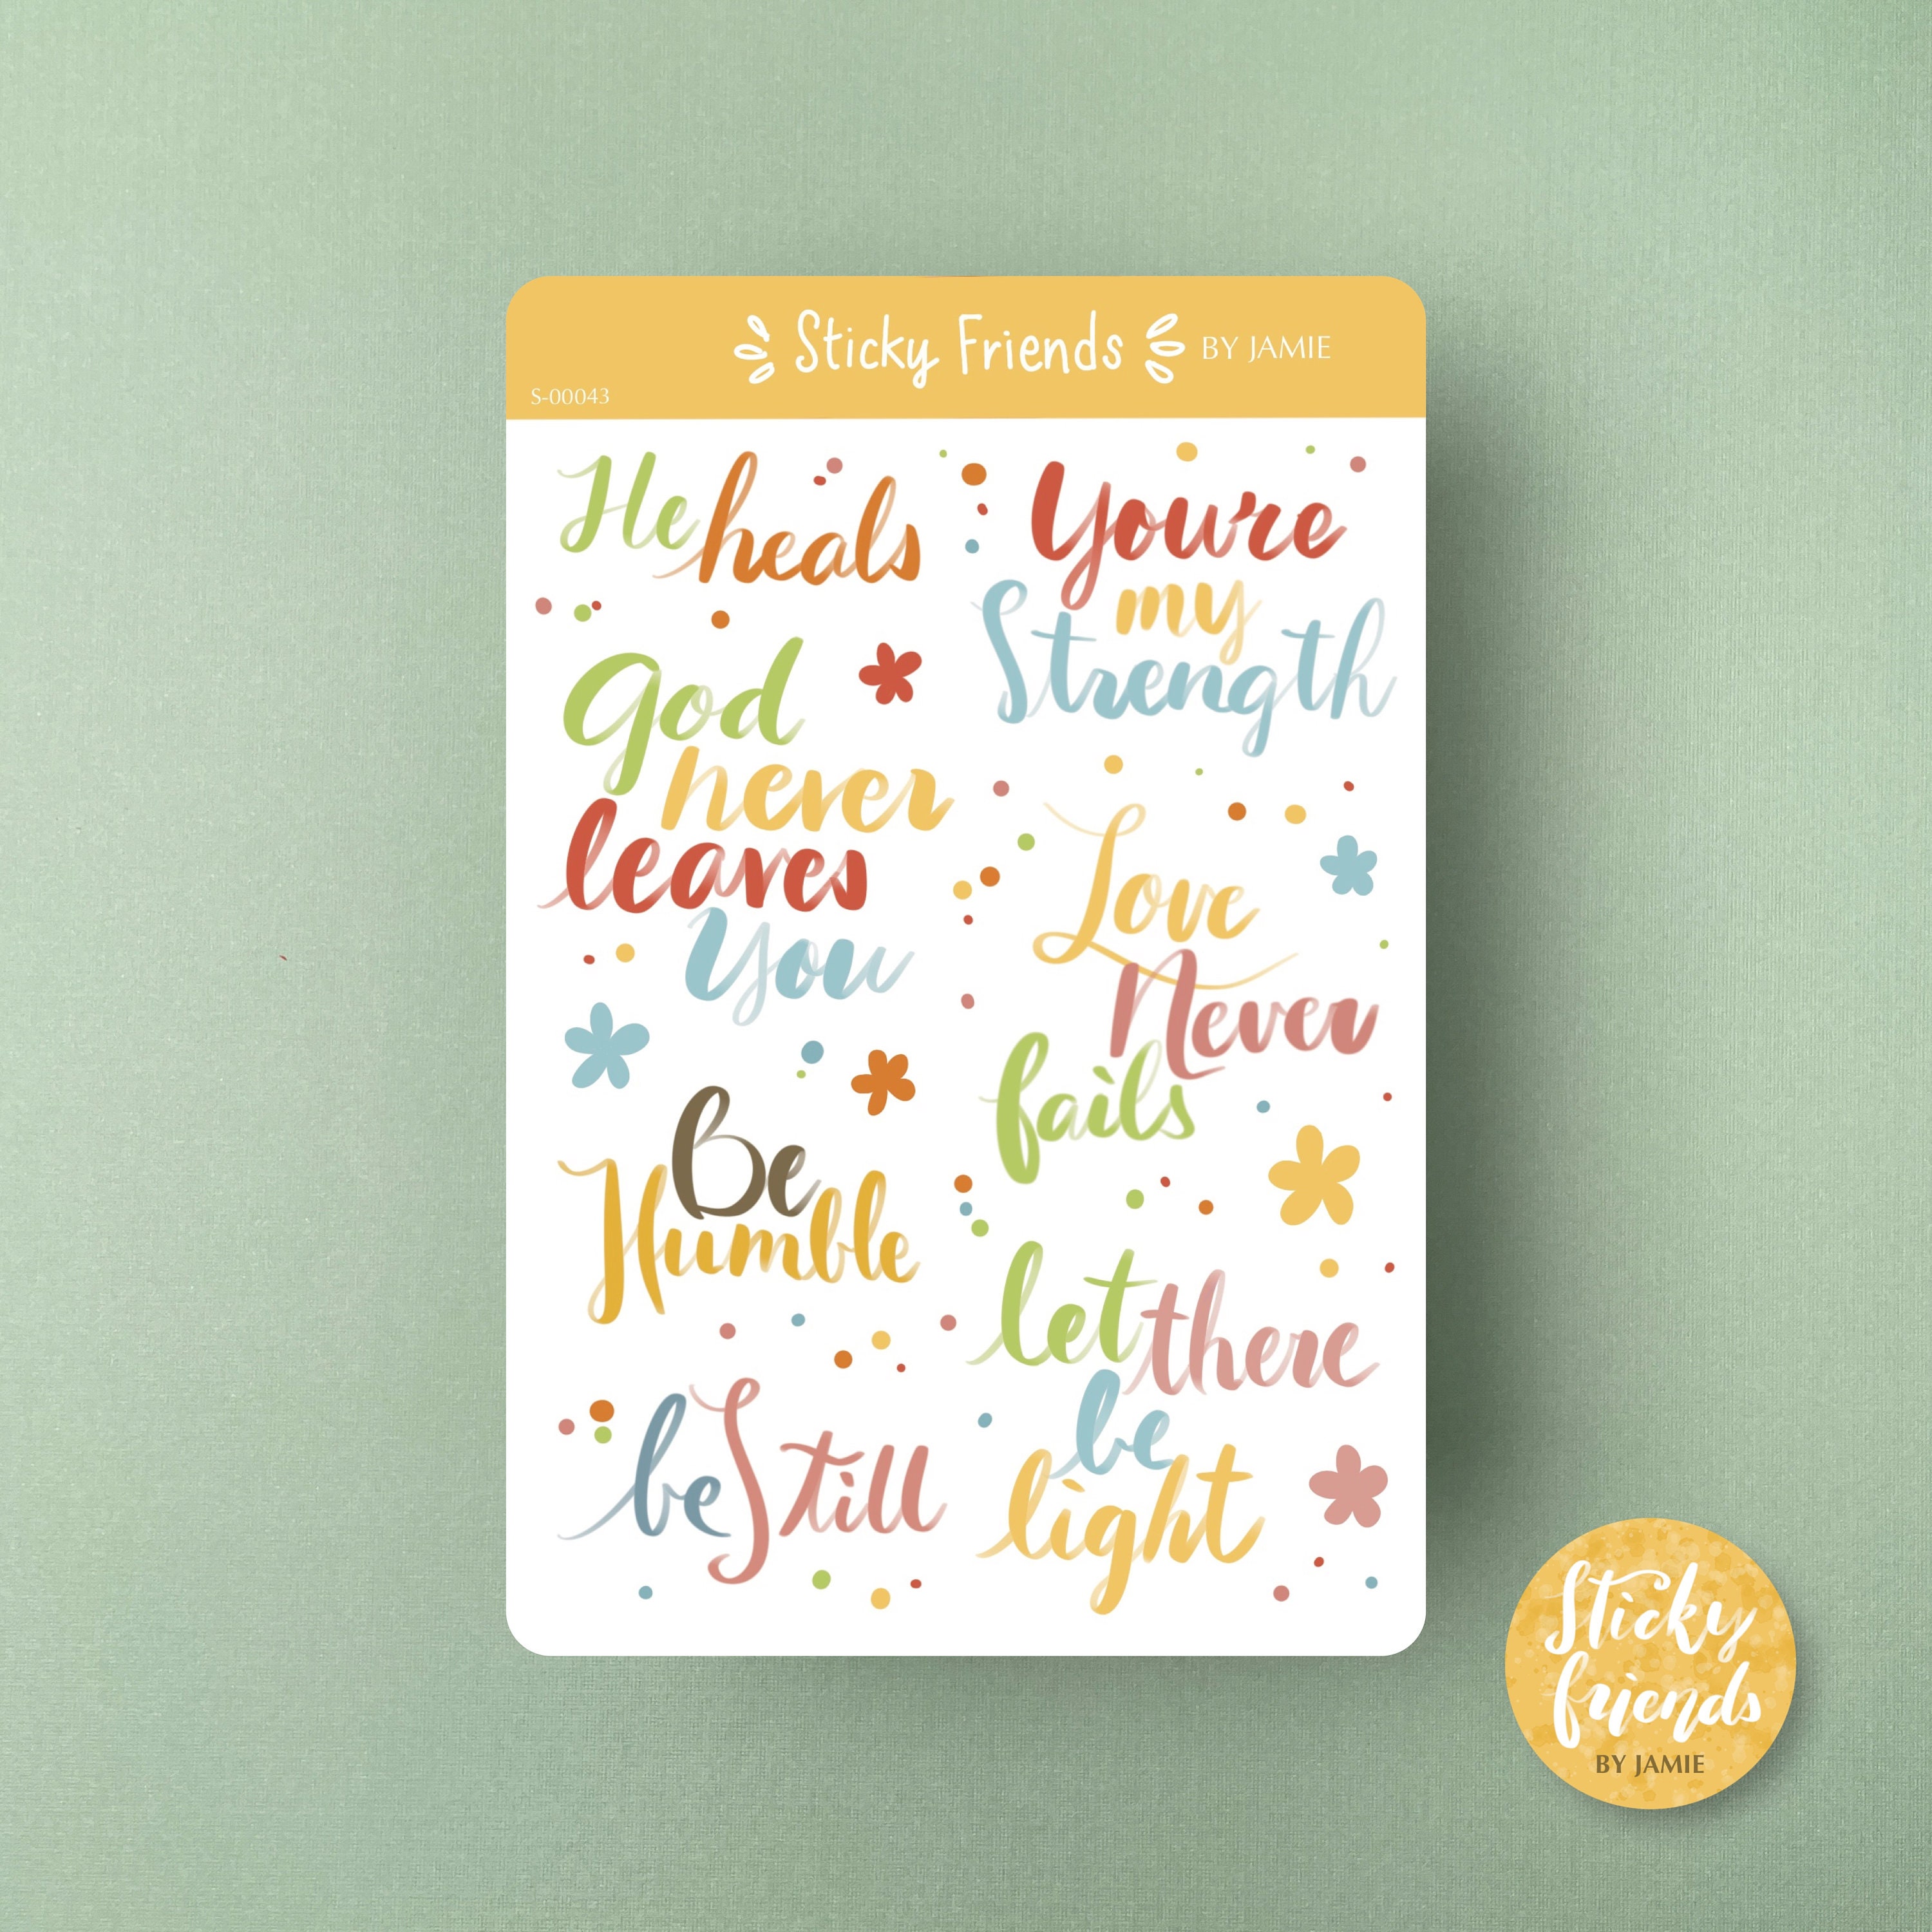 Sticky Friends BY JAMIE
S-00043
He heals
God
never
leaves
you
Be
Humble
be Still
You're
my
Strength
Love
Never
fails
let there
be
light
Sticky
friends
BY JAMIE